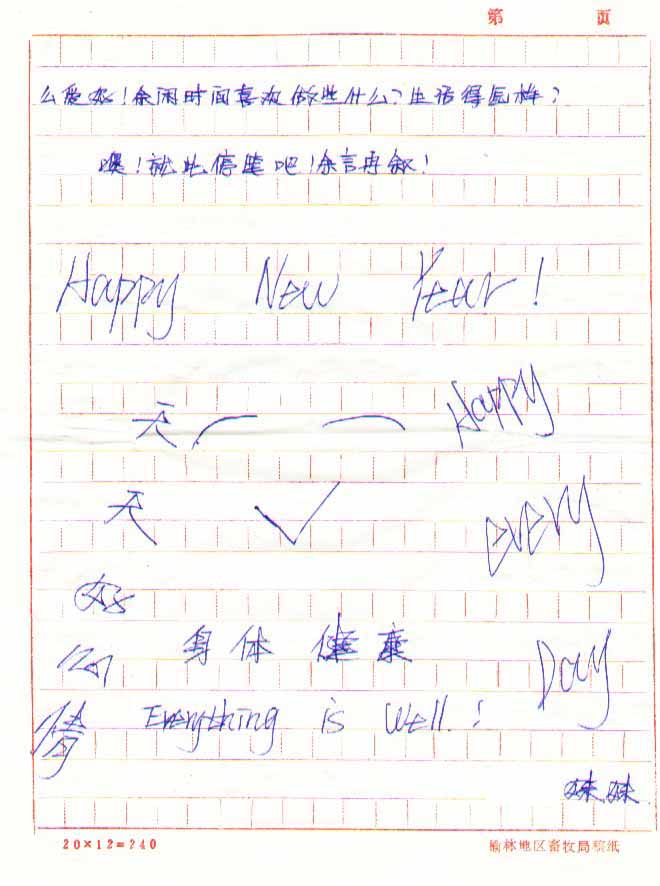 第 页
么爱好！余闲时间喜欢做些什么？生活得怎样？
噢！就此停笔吧！余言再叙！
Happy New Year!
天 Happy
天 ✓ every
好
心 身体健康 Day
情 Everything is well!
妹妹
20×12=240 榆林地区畜牧局稿纸